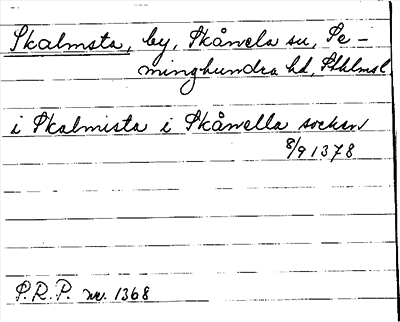 Skalmsta, by, Skånela sn, Se-
minghundra hd, Sthlms l.
i Skalmista i Skånella socken
8/9 1378
P.R.P. nr. 1368